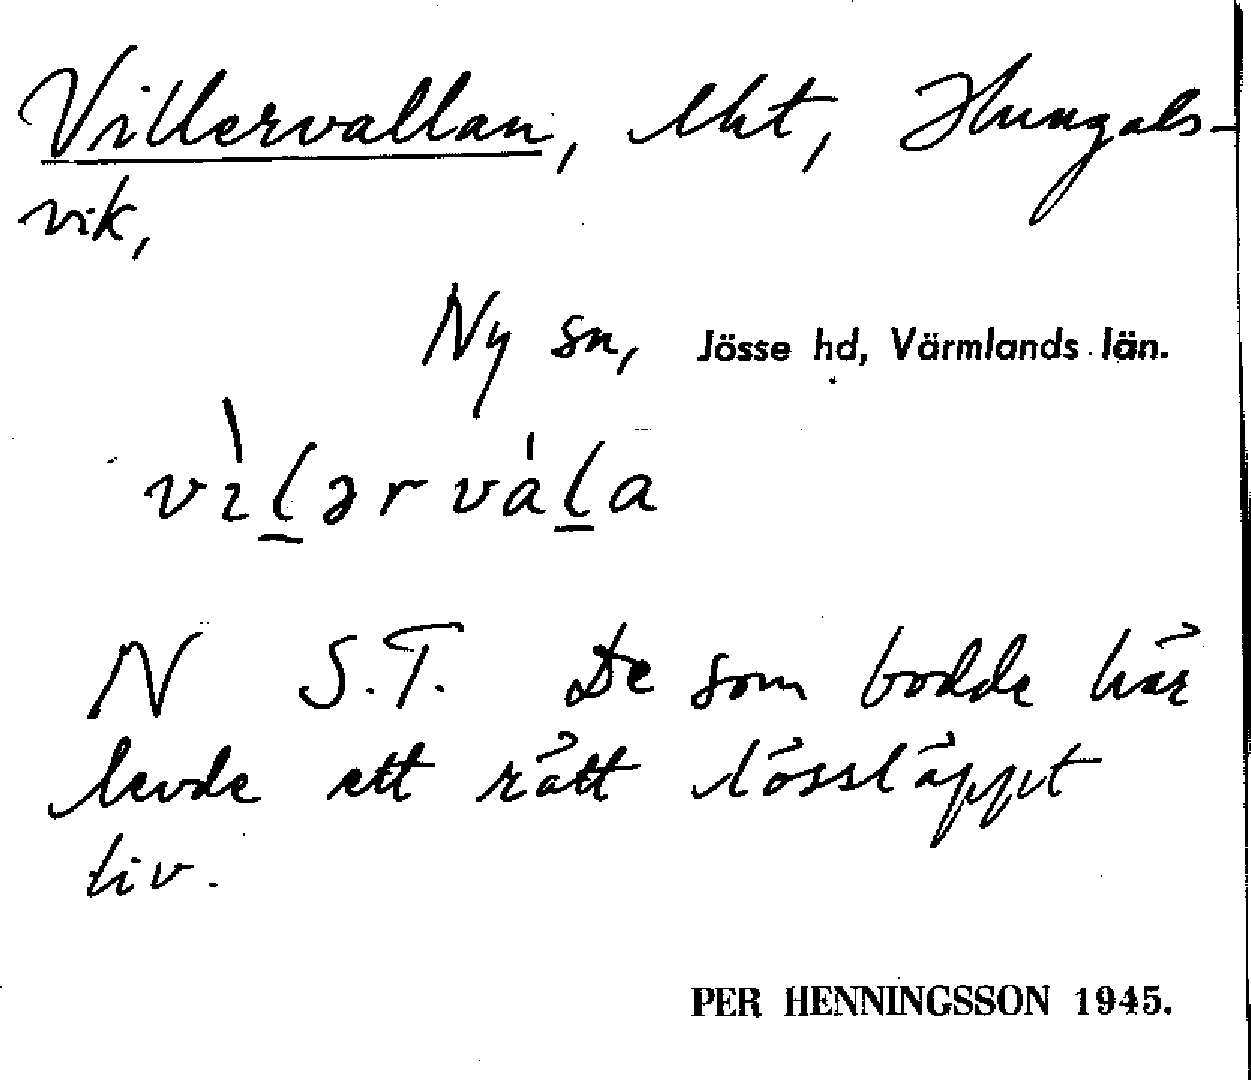 Villervallan, lht, Hungals-
vik,
Ny sn, Jösse hd, Värmlands län.
vìlərvála
N S.T. De som bodde här
levde ett rått lössläppt
liv.
PER HENNINGSSON 1945.